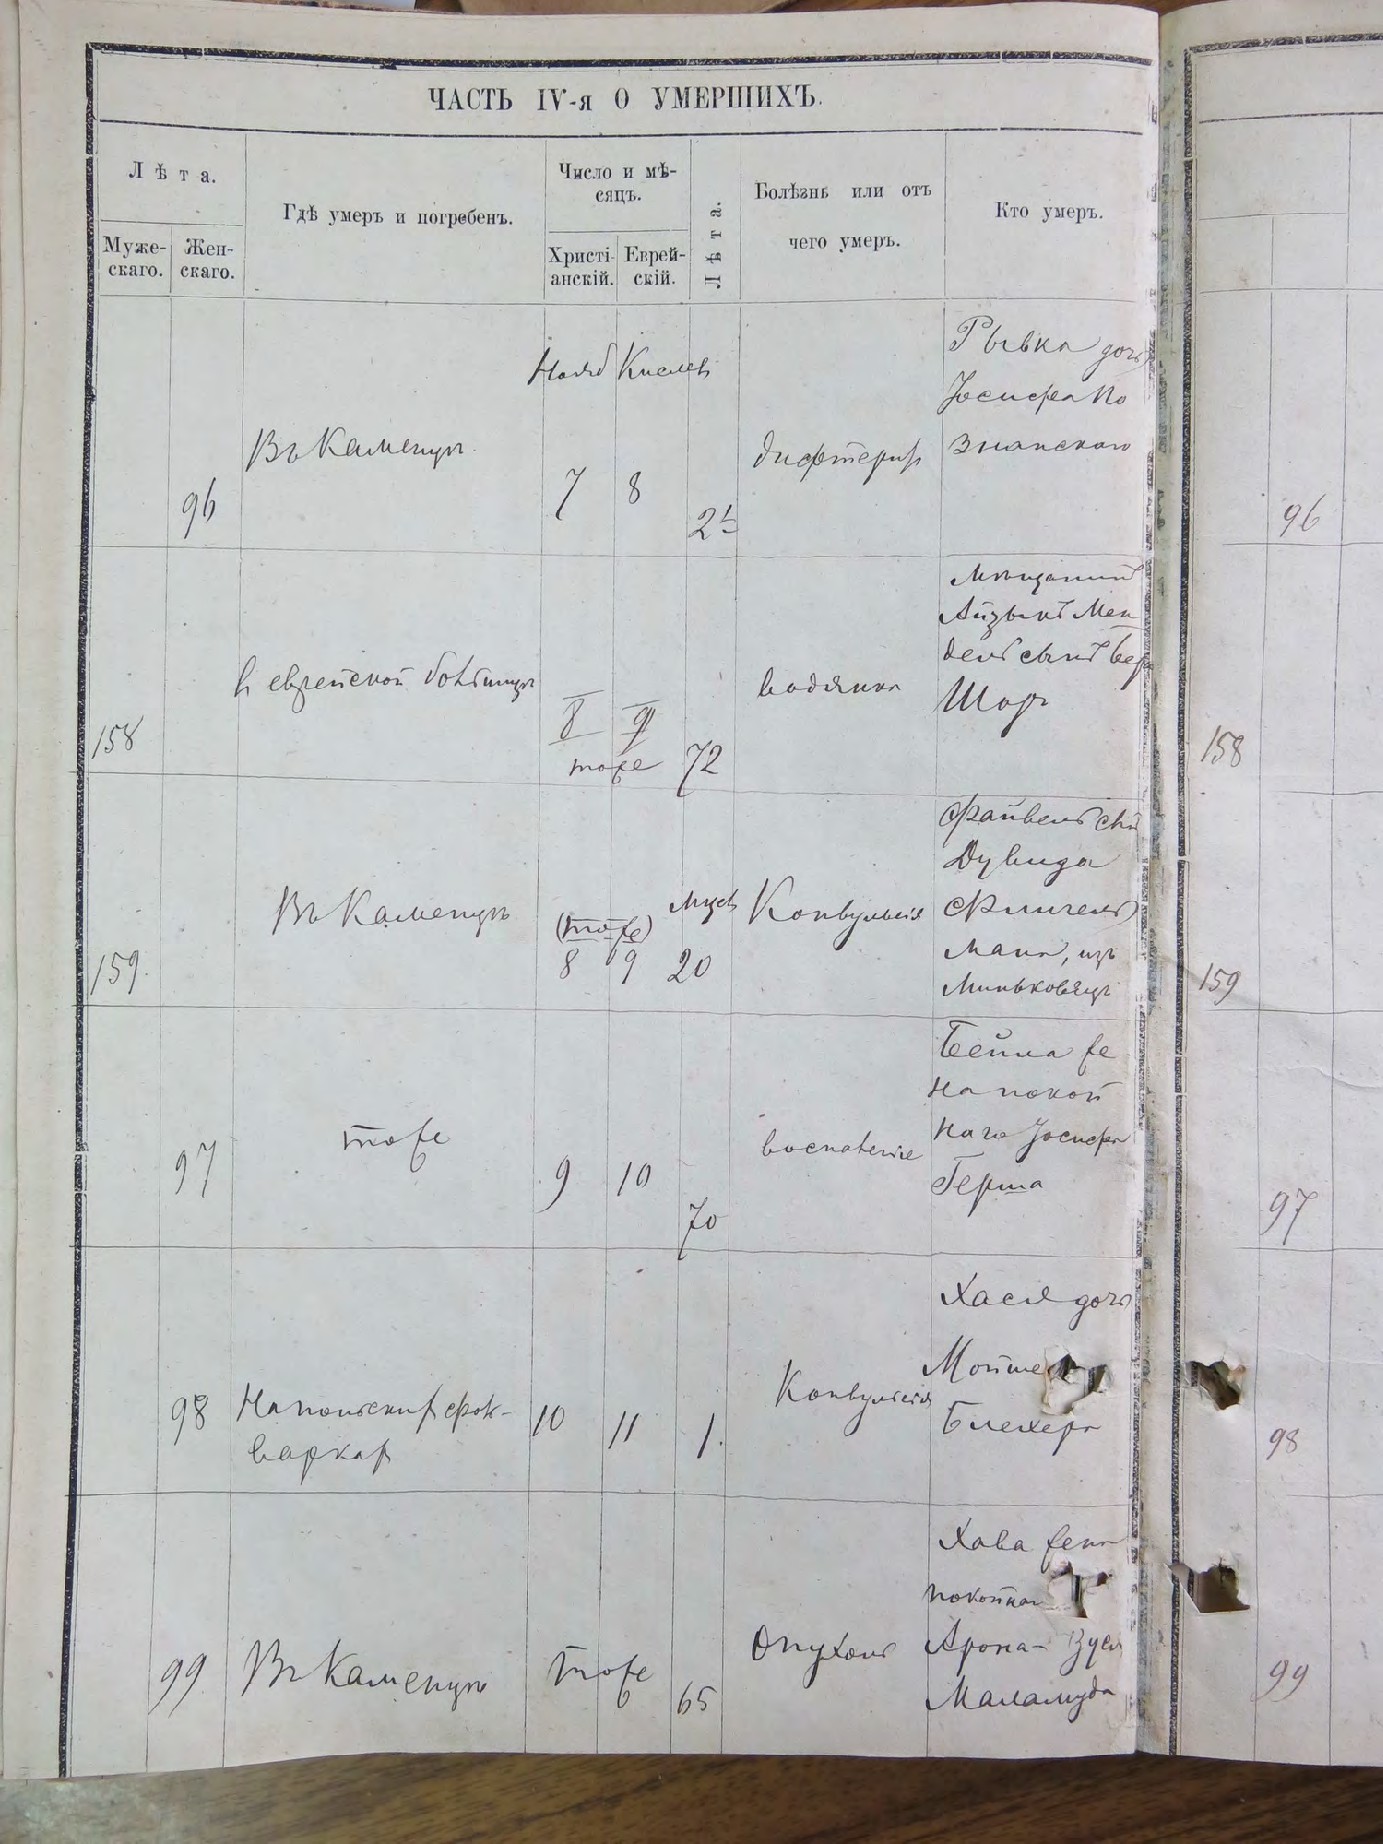 ЧАСТЬ IV-я О УМЕРШИХЪ.
Лѣта.
Муже-
скаго.
Жен-
скаго.
Гдѣ умеръ и погребенъ.
Число и мѣ-
сяцъ.
Христі-
анскій.
Еврей-
скій.
Лѣта.
Болѣзнь или отъ
чего умеръ.
Кто умеръ.
96
Въ Каменцѣ
Нояб Кислевъ
7 8
2½
дифтеритъ
Рывка дочь
Іосифа По
знанскаго
96
158
в еврейской больницѣ
8 9
тоже
72
водянка
мѣщанинъ
Айзыкъ Мен
дель сынъ Бер
Шоръ
158
159
Въ Каменцѣ
(тоже)
8 9
мцев
20
Конвульсія
Файвель сынъ
Дувида
мана, изъ
Миньковецъ
159
97
тоже
9 10
70
воспаленіе
Бейла же
на покой
наго Іосифа
Герша
97
98
На польскихъ фоль-
варкахъ
10 11
1.
Конвульсія
Хася дочь
Блехера
98
99
Въ Каменцѣ
Тоже
65
Опухоль
Хава жена
Арона-Зуся
Маламуда
99